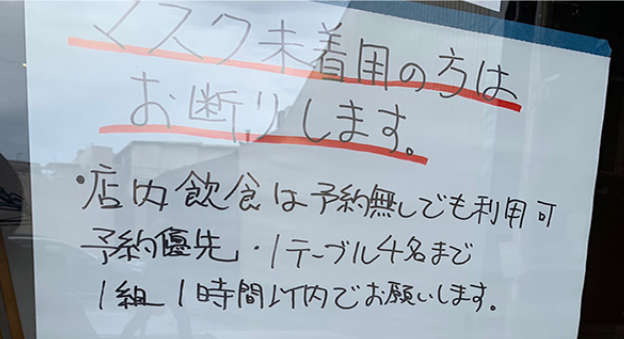 マスク未着用の方は
お断りします。
・店内飲食は予約無しでも利用可
予約優先・1テーブル4名まで
1組 1時間以内でお願いします。